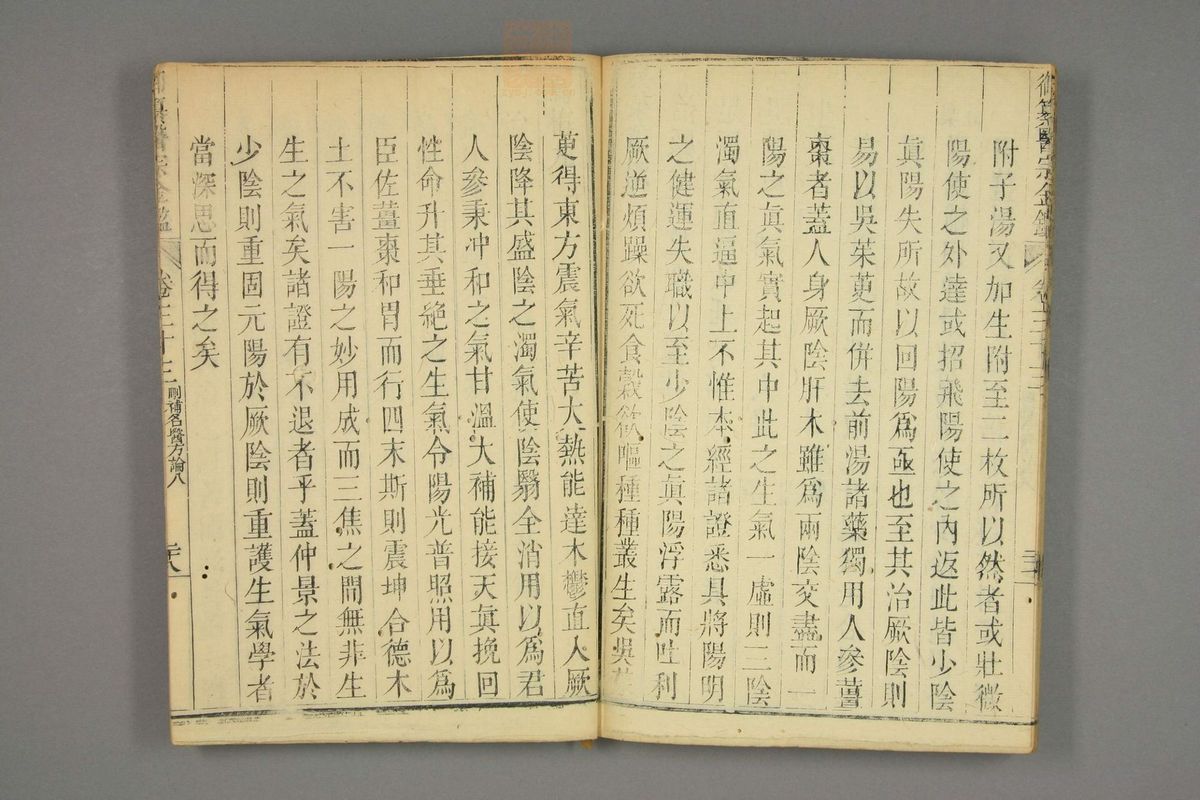 附子湯又加生附至二枚所以然者或壯微
陽使之外達或招飛陽使之內返此皆少陰
眞陽失所故以回陽爲亟也至其治厥陰則
易以吳茱萸而併去前湯諸藥獨用人參薑
棗者蓋人身厥陰肝木雖爲兩陰交盡而一
陽之眞氣實起其中此之生氣一虛則三陰
濁氣直逼中上不惟本經諸證悉具將陽明
之健運失職以至少陰之眞陽浮露而吐利
厥逆煩躁欲死食穀欲嘔種種叢生矣吳茱
萸得東方震氣辛苦大熱能達木鬱直入厥
陰降其盛陰之濁氣使陰翳全消用以爲君
人參秉冲和之氣甘溫大補能接天眞挽回
性命升其垂絕之生氣令陽光普照用以爲
臣佐薑棗和胃而行四末斯則震坤合德木
土不害一陽之妙用成而三焦之間無非生
生之氣矣諸證有不退者乎蓋仲景之法於
少陰則重固元陽於厥陰則重護生氣學者
當深思而得之矣
御纂醫宗金鑑 卷三十三 刪補名醫方論八 二十八